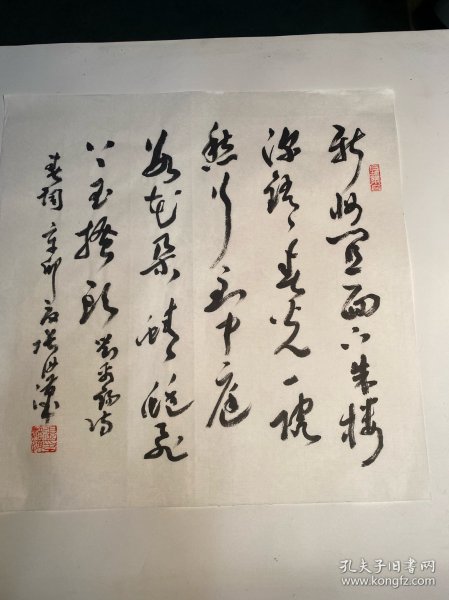 新妆宜面下朱楼
深锁春光一院
愁行到中庭
数花朵蜻蜓飞
上玉搔头 刘禹锡诗
春词 辛卯
孔夫子旧书网
www.kongfz.com